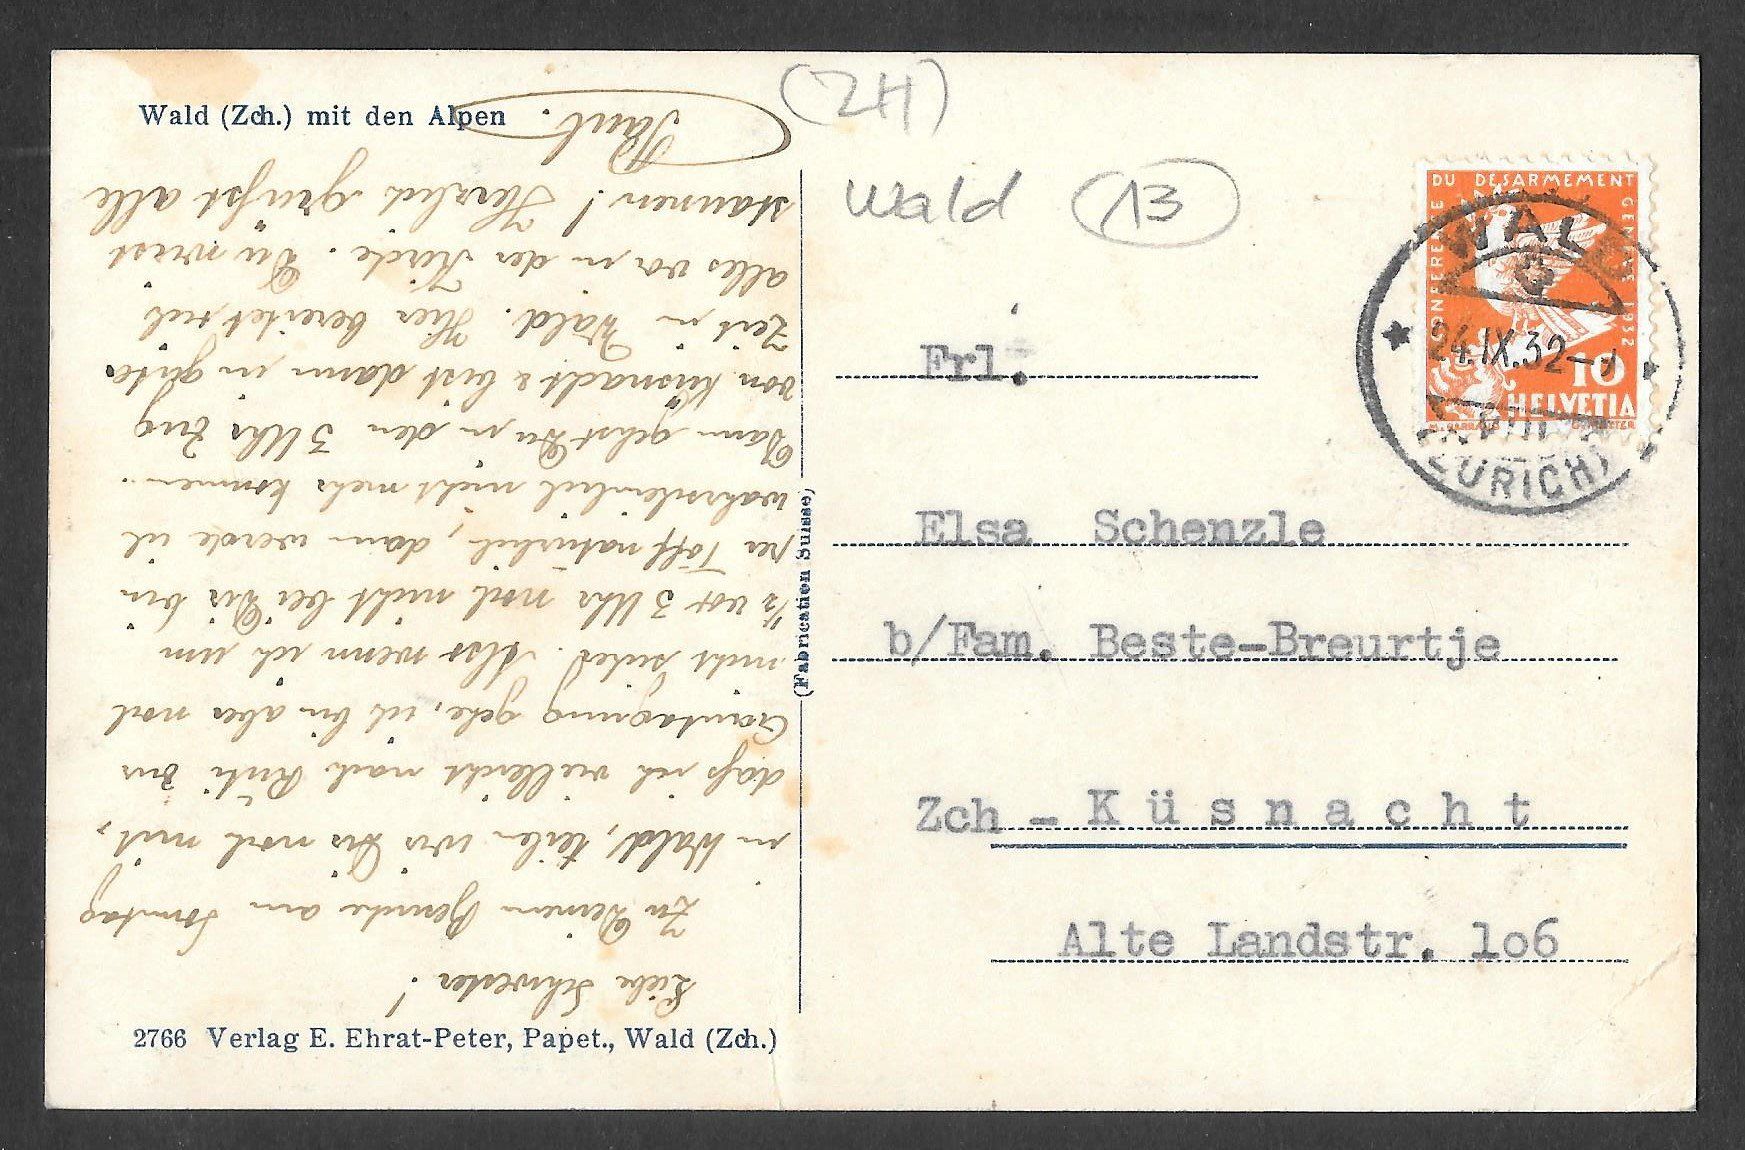 Wald (Zch.) mit den Alpen
(ZH)
Wald 13
Liebe Schwester!
Zu Deinem Besuche am Sonntag
in Wald, teilen wir Dir noch mit,
daß ich vielleicht nach Rüti zur
Trainig gehe, ich bin aber noch
nicht sicher. Also wenn ich um
½ vor 3 Uhr noch nicht bei Dir bin
per Töff natürlich, dann werde ich
wahrscheinlich nicht mehr kommen.
Dann gehst Du in den 3 Uhr Zug
von Küsnacht & bist dann in guter
Zeit in Wald. Hier bereitet sich
alles vor in der Kirche. Du wirst
staunen! Herzlich grüßt alle
Paul.
(Fabrication Suisse)
2766 Verlag E. Ehrat-Peter, Papet., Wald (Zch.)
CONFERENCE DU DESARMEMENT GENEVE 1932
10
HELVETIA
WALD
24.IX.32
(ZÜRICH)
Frl.
Elsa Schenzle
b/Fam. Beste-Breurtje
Zch - Küsnacht
Alte Landstr. 1o6